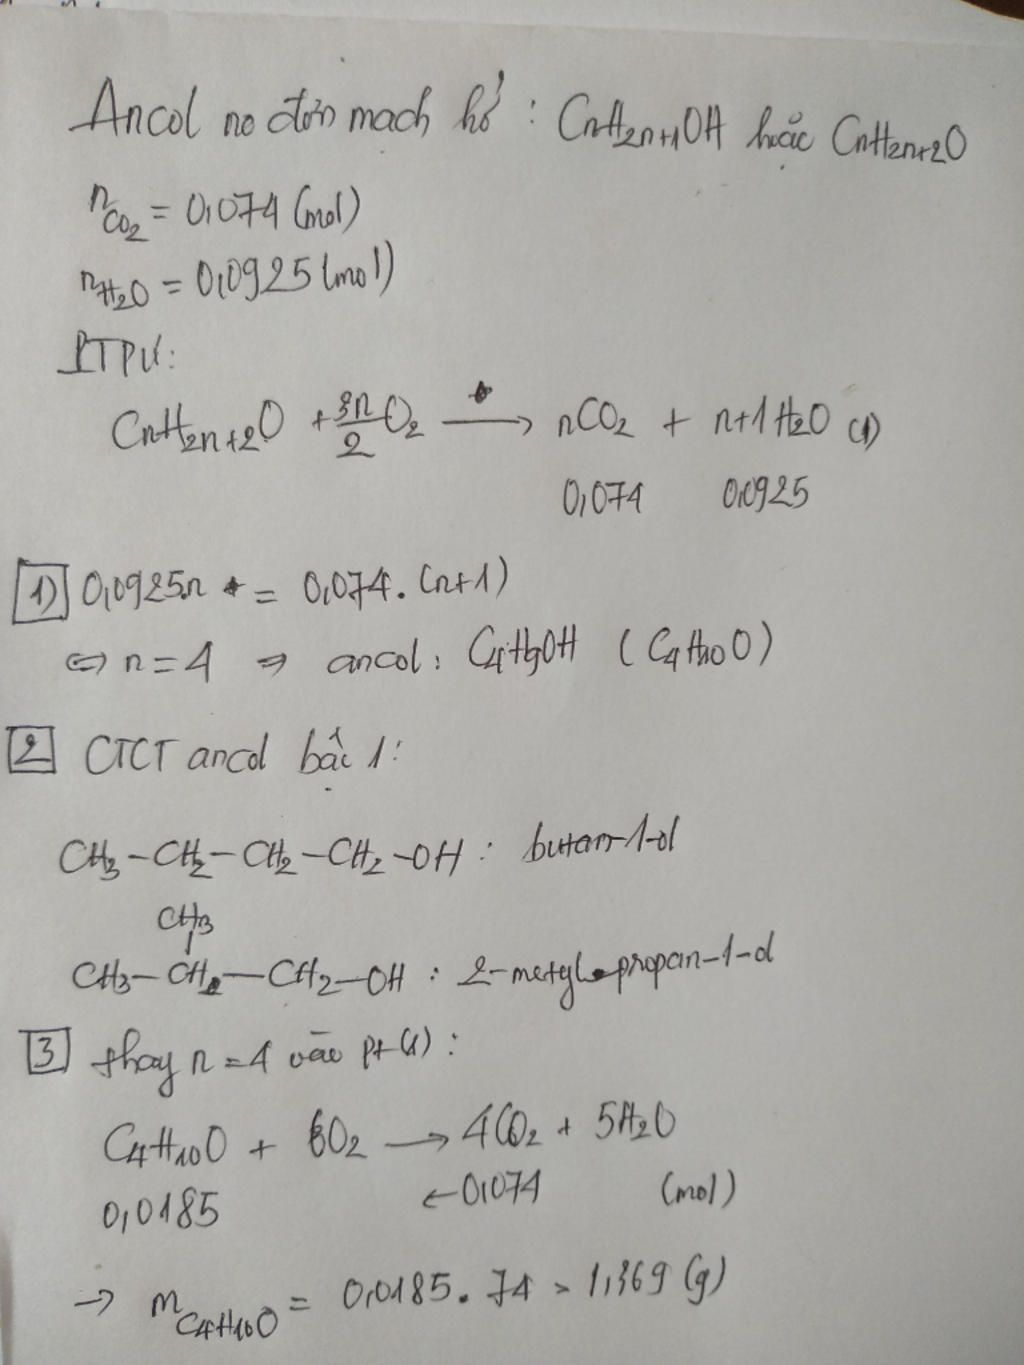 Ancol no đơn mạch hở : CnH2n+1OH hoặc CnH2n+2O
nCO2 = 0,074 (mol)
nH2O = 0,0925 (mol)
PTPƯ:
CnH2n+2O + 3n/2 O2 → nCO2 + n+1H2O (1)
0,074 0,0925
1) 0,0925n = 0,074.(n+1)
⇔ n = 4 ⇒ ancol : C4H9OH (C4H10O)
2 CTCT ancol bậc 1:
CH3-CH2-CH2-CH2-OH : butan-1-ol
CH3
CH3-CH-CH2-OH : 2-metyl-propan-1-ol
3 thay n = 4 vào pt (1) :
C4H10O + 6O2 → 4CO2 + 5H2O
0,0185 ←0,074 (mol)
→ mC4H10O = 0,0185.74 = 1,369 (g)